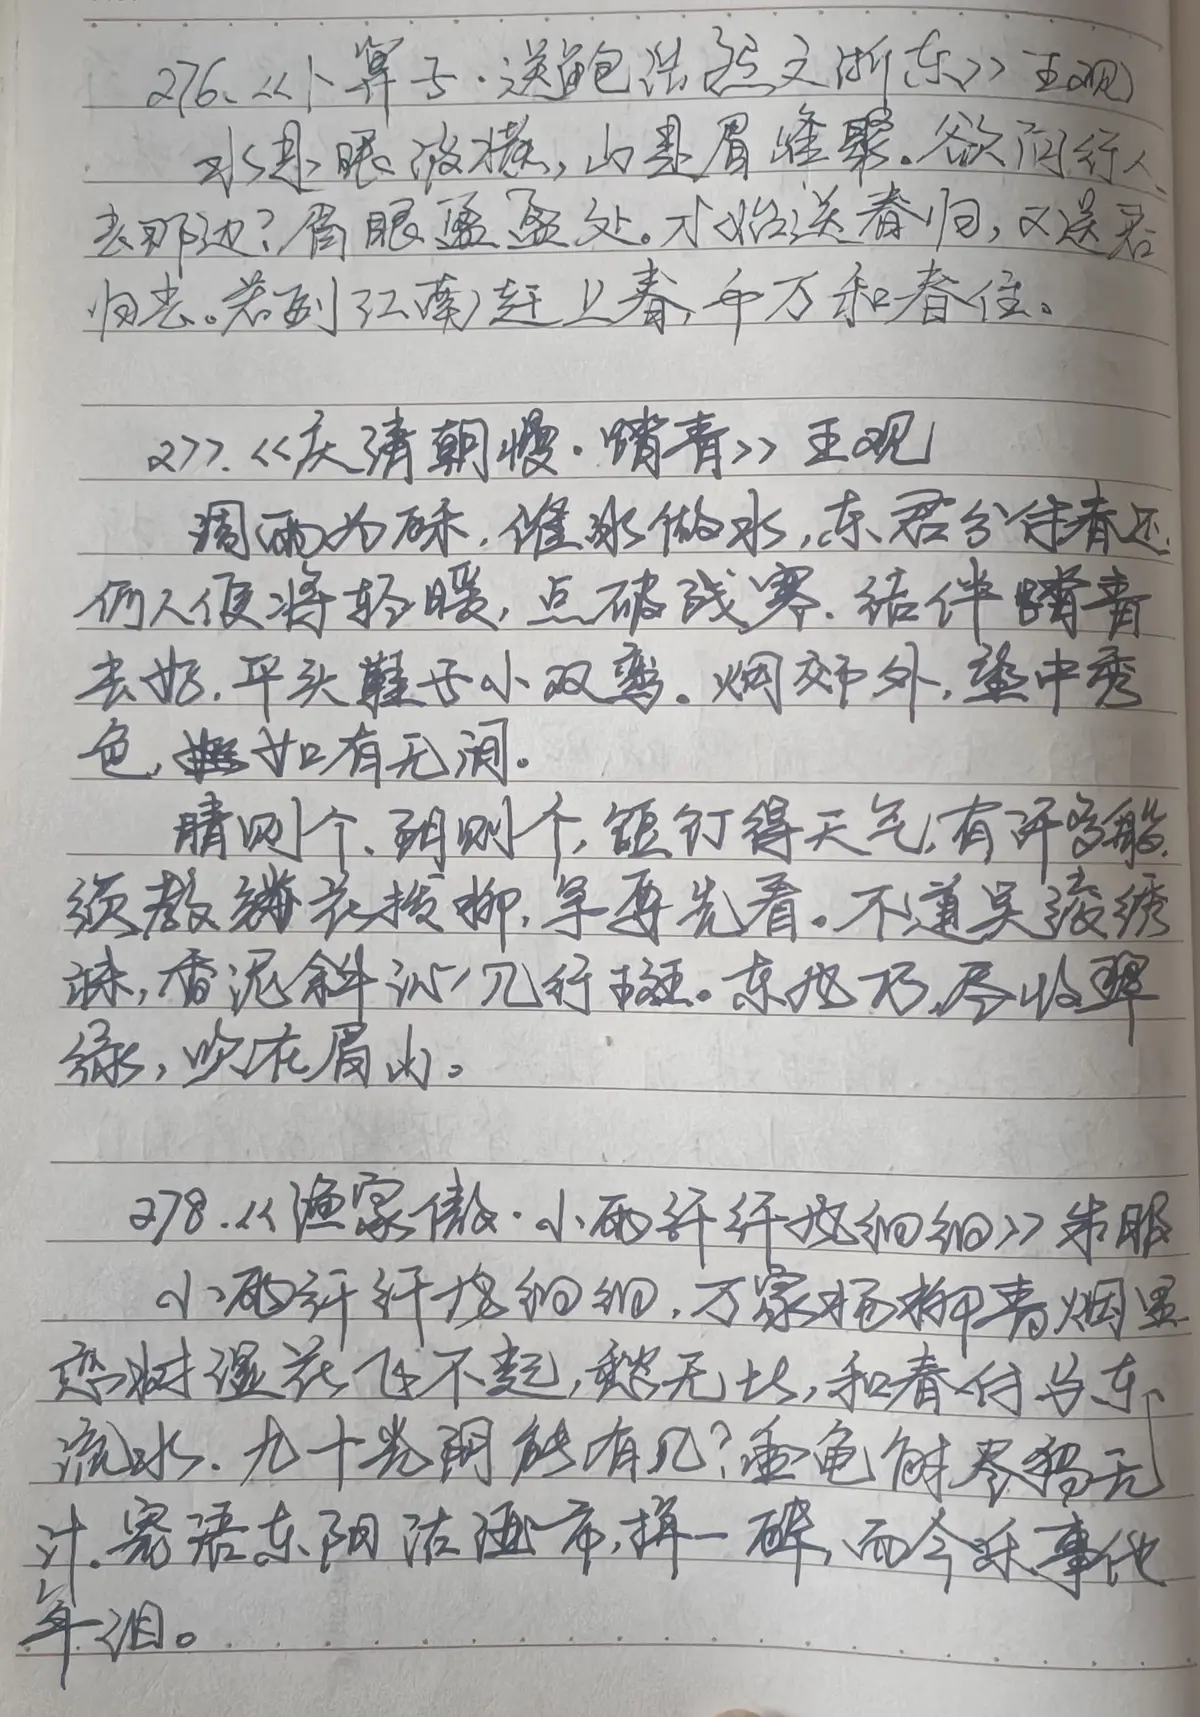 276.《卜算子·送鲍浩然之浙东》王观
水是眼波横,山是眉峰聚。欲问行人
去那边?眉眼盈盈处。才始送春归,又送君
归去。若到江南赶上春,千万和春住。
277.《庆清朝慢·踏青》王观
调雨为酥,催冰做水,东君分付春还
何人便将轻暖,点破残寒.结伴踏青
去好,平头鞋子小双鸾。烟郊外,望中秀
色,如有无间。
晴则个、阴则个,饾饤得天气,有许多般.
须教撩花拨柳,争要先看。不道吴绫绣
袜,香泥斜沁几行斑。东风巧,尽收翠
绿,吹在眉山。
278.《渔家傲·小雨纤纤风细细》朱服
小雨纤纤风细细,万家杨柳青烟里
恋树湿花飞不起,愁无比,和春付与东
流水.九十光阴能有几?金龟解尽留无
计.寄语东阳沽酒市,拼一醉,而今乐事他
年泪。